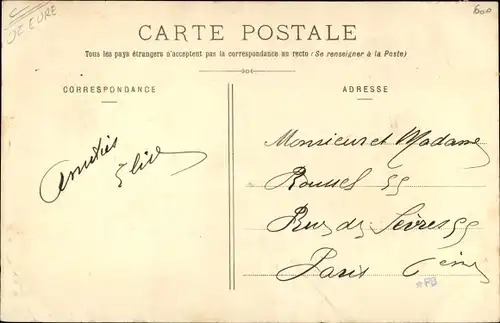 DE EURE
600
CARTE POSTALE
Tous les pays étrangers n'acceptent pas la correspondance au recto (Se renseigner à la Poste)
CORRESPONDANCE
ADRESSE
Amitiés
Elise
Monsieur et Madame
Roussel 55
Rue de Sèvres 55
Paris
*PB